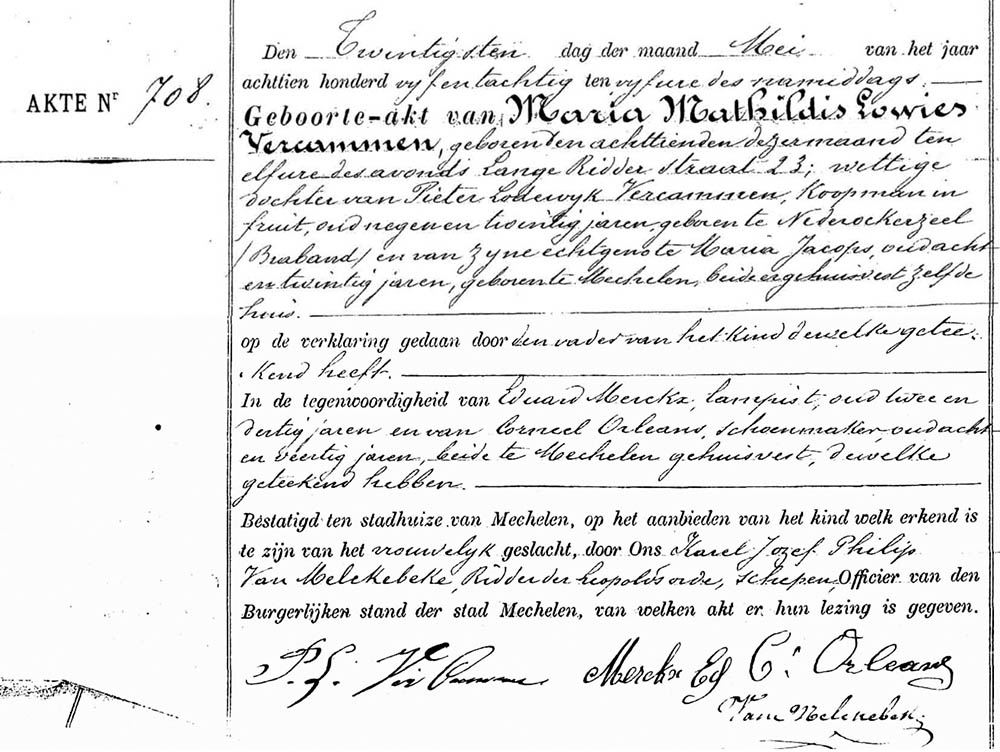 AKTE Nr 708.
Den Twintigsten dag der maand Mei van het jaar
achttien honderd vyfentachtig ten vyf ure des namiddags.
Geboorte-akt van Maria Mathildis Lowies
Vercammen, geboren den achttienden dezer maand ten
elf ure des avonds Lange Ridder straat 23; wettige
dochter van Pieter Lodewyk Vercammen, Koopman in
fruit, oud negen en twintig jaren, geboren te Nederockerzeel
/Braband/ en van zyne echtgenote Maria Jacops, oud acht
en twintig jaren, geboren te Mechelen, beide er gehuisvest zelfde
huis.
op de verklaring gedaan door den vader van het kind dewelke getee-
kend heeft.
In de tegenwoordigheid van Eduard Merckx, lampist, oud twee en
dertig jaren en van Corneel Orleans, schoenmaker, oud acht
en veertig jaren, beide te Mechelen gehuisvest, dewelke
geteekend hebben.
Bestatigd ten stadhuize van Mechelen, op het aanbieden van het kind welk erkend is
te zijn van het vrouwelyk geslacht, door Ons Karel Jozef Philip
Van Melckebeke, Ridder der Leopolds orde, schepen, Officier van den
Burgerlijken stand der stad Mechelen, van welken akt er hun lezing is gegeven.
P. L. Vercammen Merckx Ed Cs Orleans
Van Melckebeke